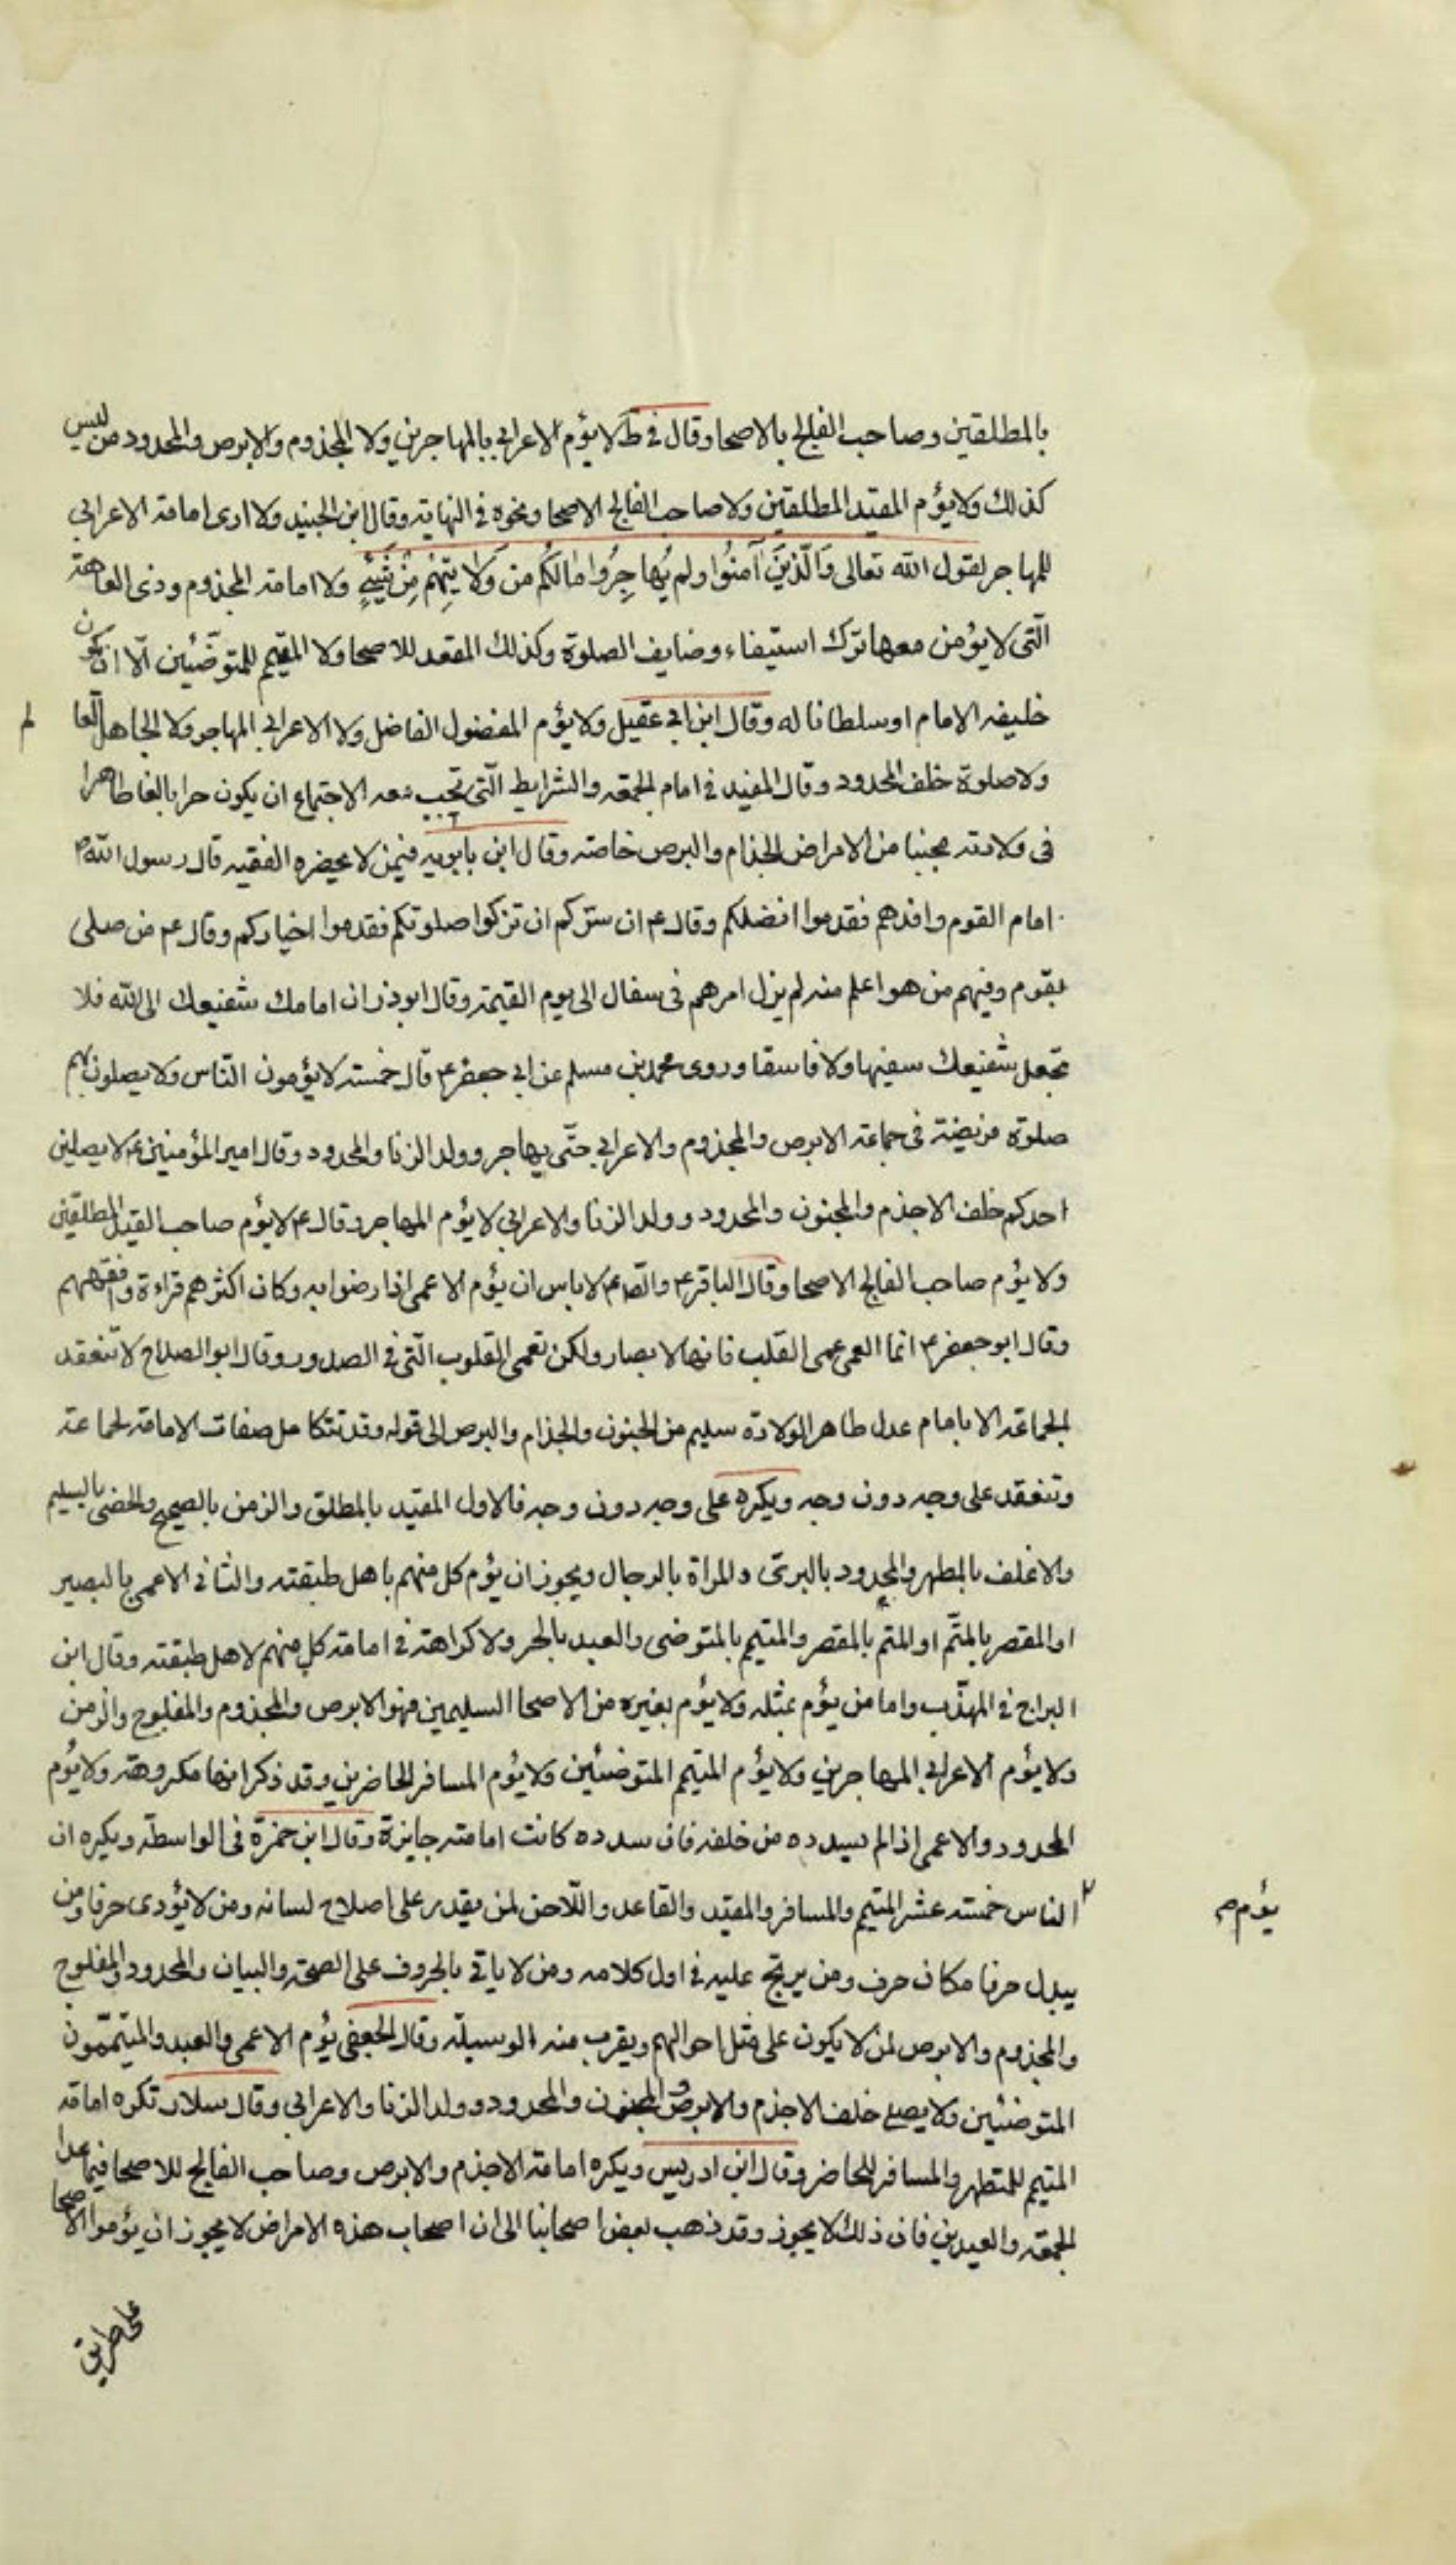 بالمطلقين وصاحب الفالج بالاصحا وقال فى ط لا يؤم الاعرابي بالمهاجرين ولا المجذوم والابرص والمحدود من ليس
كذلك ولا يؤم المقيد المطلقين ولا صاحب الفالج الاصحا ونحوه فى النهاية وقال ابن الجنيد ولا ارى امامة الاعرابي
للمهاجر لقول الله تعالى وَالَّذِينَ آمَنُوا ولم يُهاجِرُوا مٰالَكُم من وَلاٰيَتِهِمْ مِنْ شَيْءٍ ولا امامة المجذوم وذى العاهة
الّتى لا يؤمن معها ترك استيفاء وضايف الصلوة وكذلك المقعد للاصحا ولا المتيمم للمتوضّئين الّا ان يكون
خليفه الامام او سلطانا له وقال ابن ابي عقيل ولا يؤم المفضول الفاضل ولا الاعرابي المهاجر ولا الجاهل العا لم
ولا صلوة خلف المحدود وقال المفيد فى امام الجمعه والشرايط الّتى تجب معه الاجتماع ان يكون حرا بالغا طاهرا
فى ولادته مجنبا من الامراض الجذام والبرص خاصة وقال ابن بابويه فيمن لا يحضره الفقيه قال رسول اللهص
امام القوم وافدهم فقدموا افضلكم وقال ع ان سركم ان تزكوا صلوتكم فقدموا اخياركم وقال ع من صلى
بقوم وفيهم من هو اعلم منه لم يزل امرهم فى سفال الى يوم القيمة وقال ابوذر ان امامك شفيعك الى الله فلا
تجعل شفيعك سفيها ولا فاسقا وروى محمد بن مسلم عن ابي جعفر ع قال خمسة لا يؤمون النّاس ولا يصلون بهم
صلوة فريضة فى جماعة الابرص والمجذوم والاعرابي حتّى يهاجر وولد الزنا والمحدود وقال امير المؤمنين ع لا يصلين
احدكم خلف الاجذم والمجنون والمحدود وولد الزنا والاعرابي لا يؤم المهاجر وقال ع لا يؤم صاحب القيد المطلقين
ولا يؤم صاحب الفالج الاصحا وقال الباقر ع والصّ ع لا باس ان يؤم الاعمى اذا رضوا به وكان اكثرهم قراءة وافقههم
وقال ابو جعفر ع انّما العمى عمى القلب فانها لا بصار ولكن تعمى القلوب الّتى فى الصدور وقال ابو الصلاح لا تنعقد
الجماعة الا بامام عدل طاهر الولادة سليم من الجنون والجذام والبرص الى قوله وقد تتكامل صفات الامامة لجماعة
وتنعقد على وجه دون وجه ويكره على وجه دون وجه فالاول المقيد بالمطلق والزمن بالصحيح والخصى بالسليم
والاغلف بالمطهر والمحدود بالبرئ والمراة بالرجال ويجوز ان يؤم كل منهم باهل طبقته والثانى الاعمى بالبصير
او المقصر بالمتّم او المتم بالمقصر والمتيمم بالمتوضى والعبد بالحر ولا كراهة فى امامة كل منهم لاهل طبقته وقال ابن
البراج فى المهذّب واما من يؤم بمثله ولا يؤم بغيره من الاصحا السليمين فهو الابرص والمجذوم والمفلوج والزمن
ولا يؤم الاعرابي المهاجرين ولا يؤم المتيمم المتوضئين ولا يؤم المسافر الحاضرين وقد ذكر انها مكروهة ولا يؤم
المحدود والاعمى اذا لم يسدده من خلفه فان سدده كانت امامته جايزة وقال ابن حمزة فى الواسطة ويكره ان
يؤم صح
الناس خمسة عشر المتيمم والمسافر والمقيد والقاعد واللّاحن لمن يقدر على اصلاح لسانه ومن لا يؤدى حرفا ومن
يبدل حرفا مكان حرف ومن يرتج عليه فى اول كلامه ومن لا ياتى بالحروف على الصحة والبيان والمحدود والمفلوج
والمجذوم والابرص لمن لا يكون على مثل احوالهم ويقرب منه الوسيلة وقال الجعفى يؤم الاعمى والعبد والمتيمّمون
المتوضئين ولا يصلى خلف الاجذم والابرص والمجنون والمحدود وولد الزنا والاعرابي وقال سلار تكره امامة
المتيمم للمتطهر والمسافر للحاضر وقال ابن ادريس ويكره امامة الاجذم والابرص وصاحب الفالج للاصحا فيما عدا
الجمعه والعيدين فان ذلك لا يجوز وقد ذهب بعض اصحابنا الى ان اصحاب هذه الامراض لا يجوز ان يؤموا الاصحا
على طريق